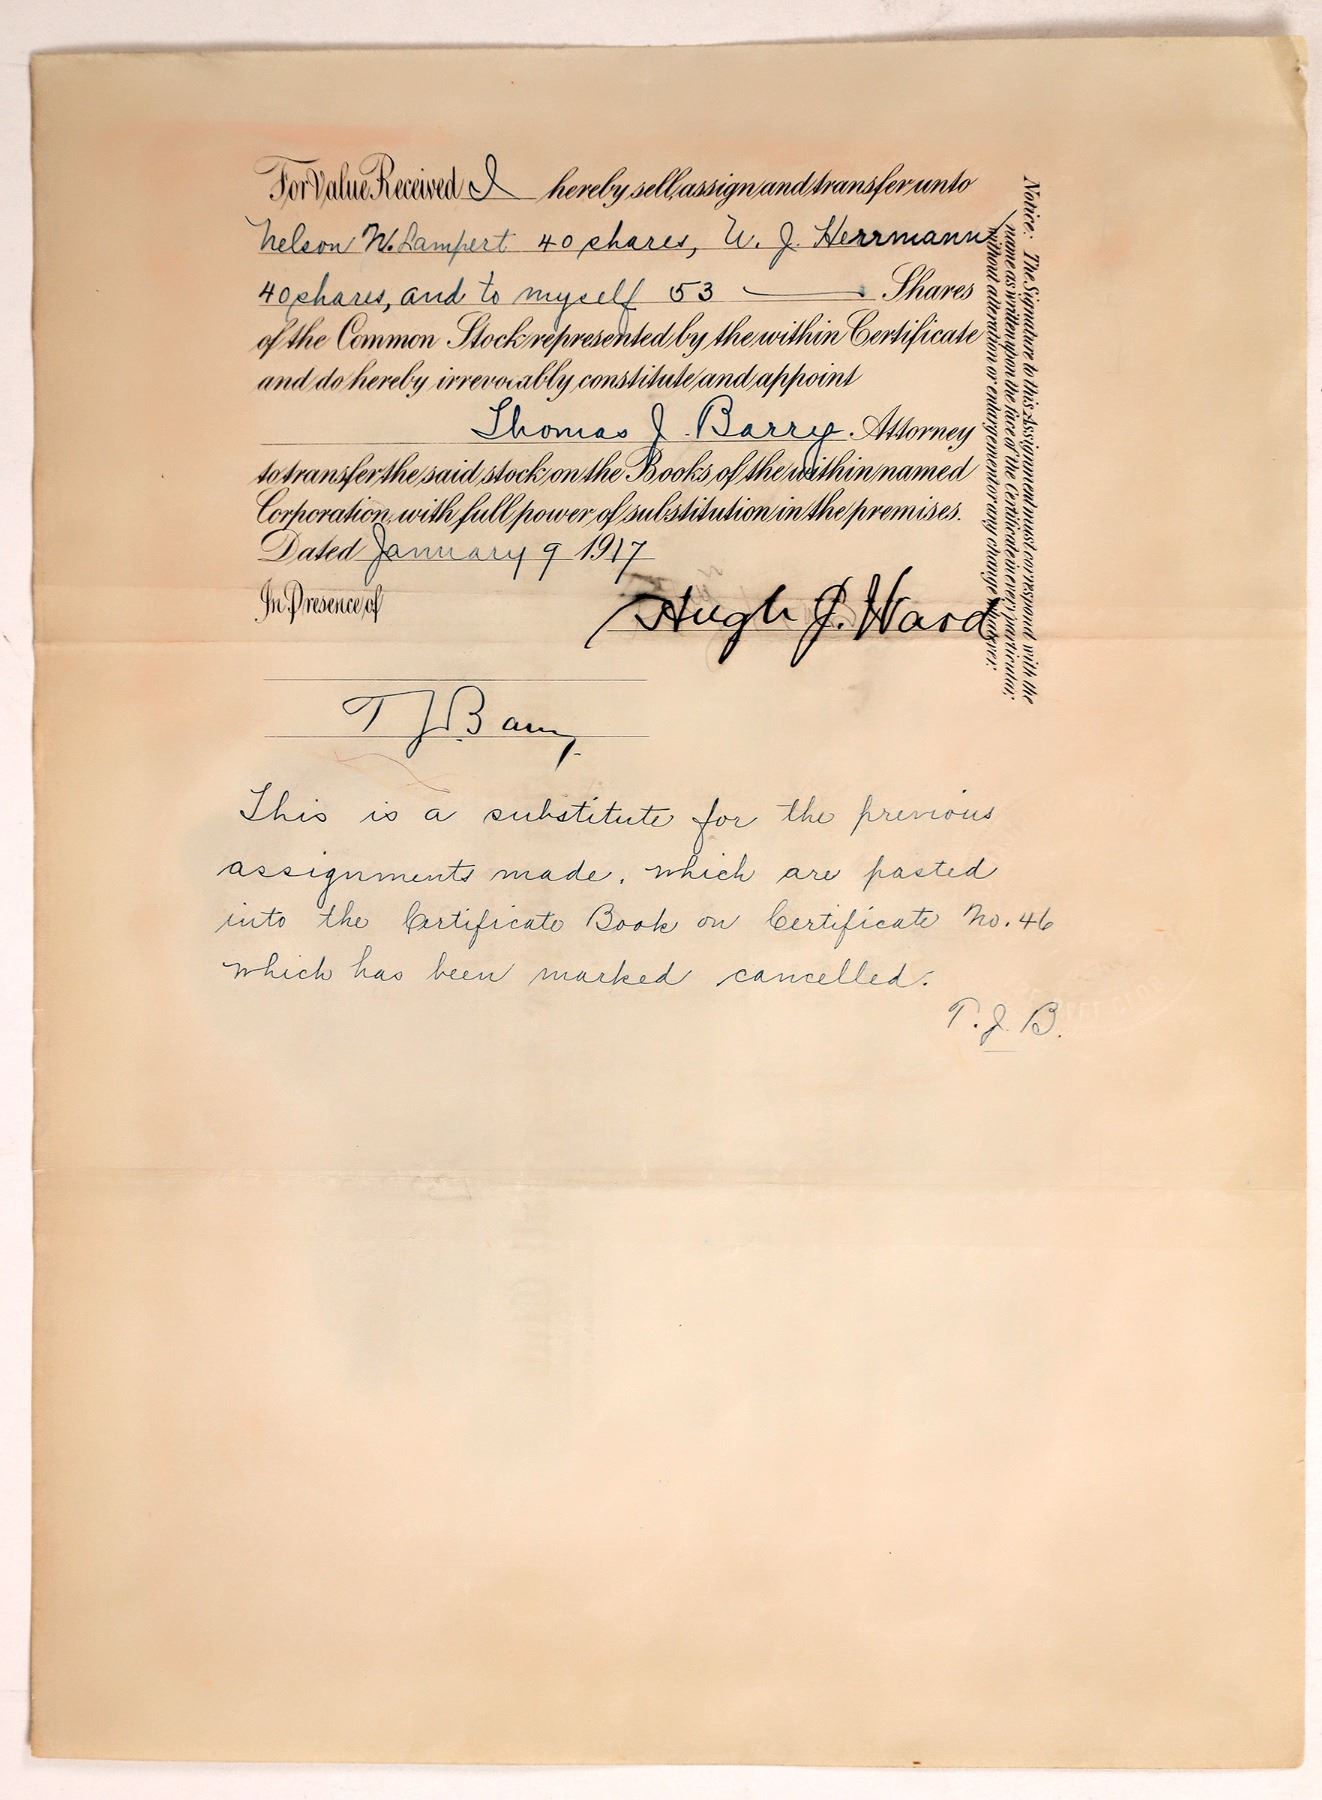 For Value Received I hereby sell, assign and transfer unto
Nelson W. Lampert 40 shares, W. J. Herrmann
40 shares, and to myself 53 Shares
of the Common Stock represented by the within Certificate
and do hereby irrevocably constitute and appoint
Thomas J. Barry Attorney
to transfer the said stock on the Books of the within named
Corporation, with full power of substitution in the premises.
Dated January 9 1917
In Presence of
Hugh J. Ward
T J Barry
Notice: The Signature to this Assignment must correspond with the
name as written upon the face of the Certificate in every particular,
without alteration or enlargement or any change whatever.
This is a substitute for the previous
assignments made, which are pasted
into the Certificate Book on Certificate No. 46
which has been marked cancelled.
T. J. B.